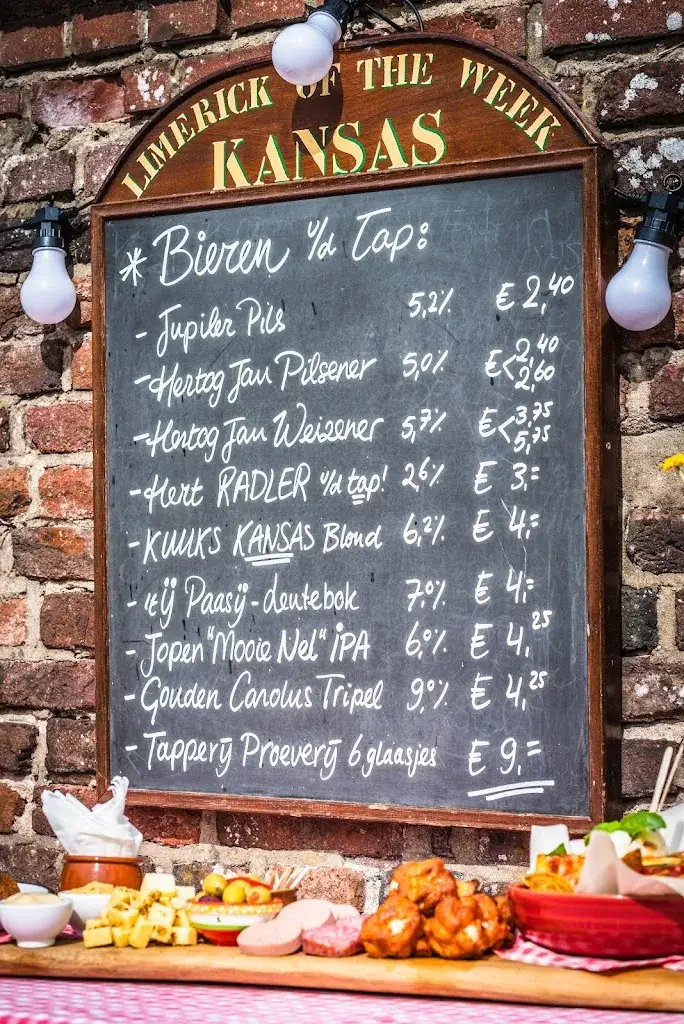 LIMERICK OF THE WEEK
KANSAS
* Bieren v/d Tap:
- Jupiler Pils 5,2% € 2,40
- Hertog Jan Pilsener 5,0% € < 2,40 2,60
- Hertog Jan Weizener 5,7% € < 3,75 5,75
- Hert RADLER v/d tap! 2,6% € 3,=
- KUUKS KANSAS Blond 6,2% € 4,=
- 't IJ Paasij-deutebok 7,0% € 4,=
- Jopen "Mooie Nel" IPA 6,0% € 4,25
- Gouden Carolus Tripel 9,0% € 4,25
- Tapperij Proeverij 6 glaasjes € 9,=